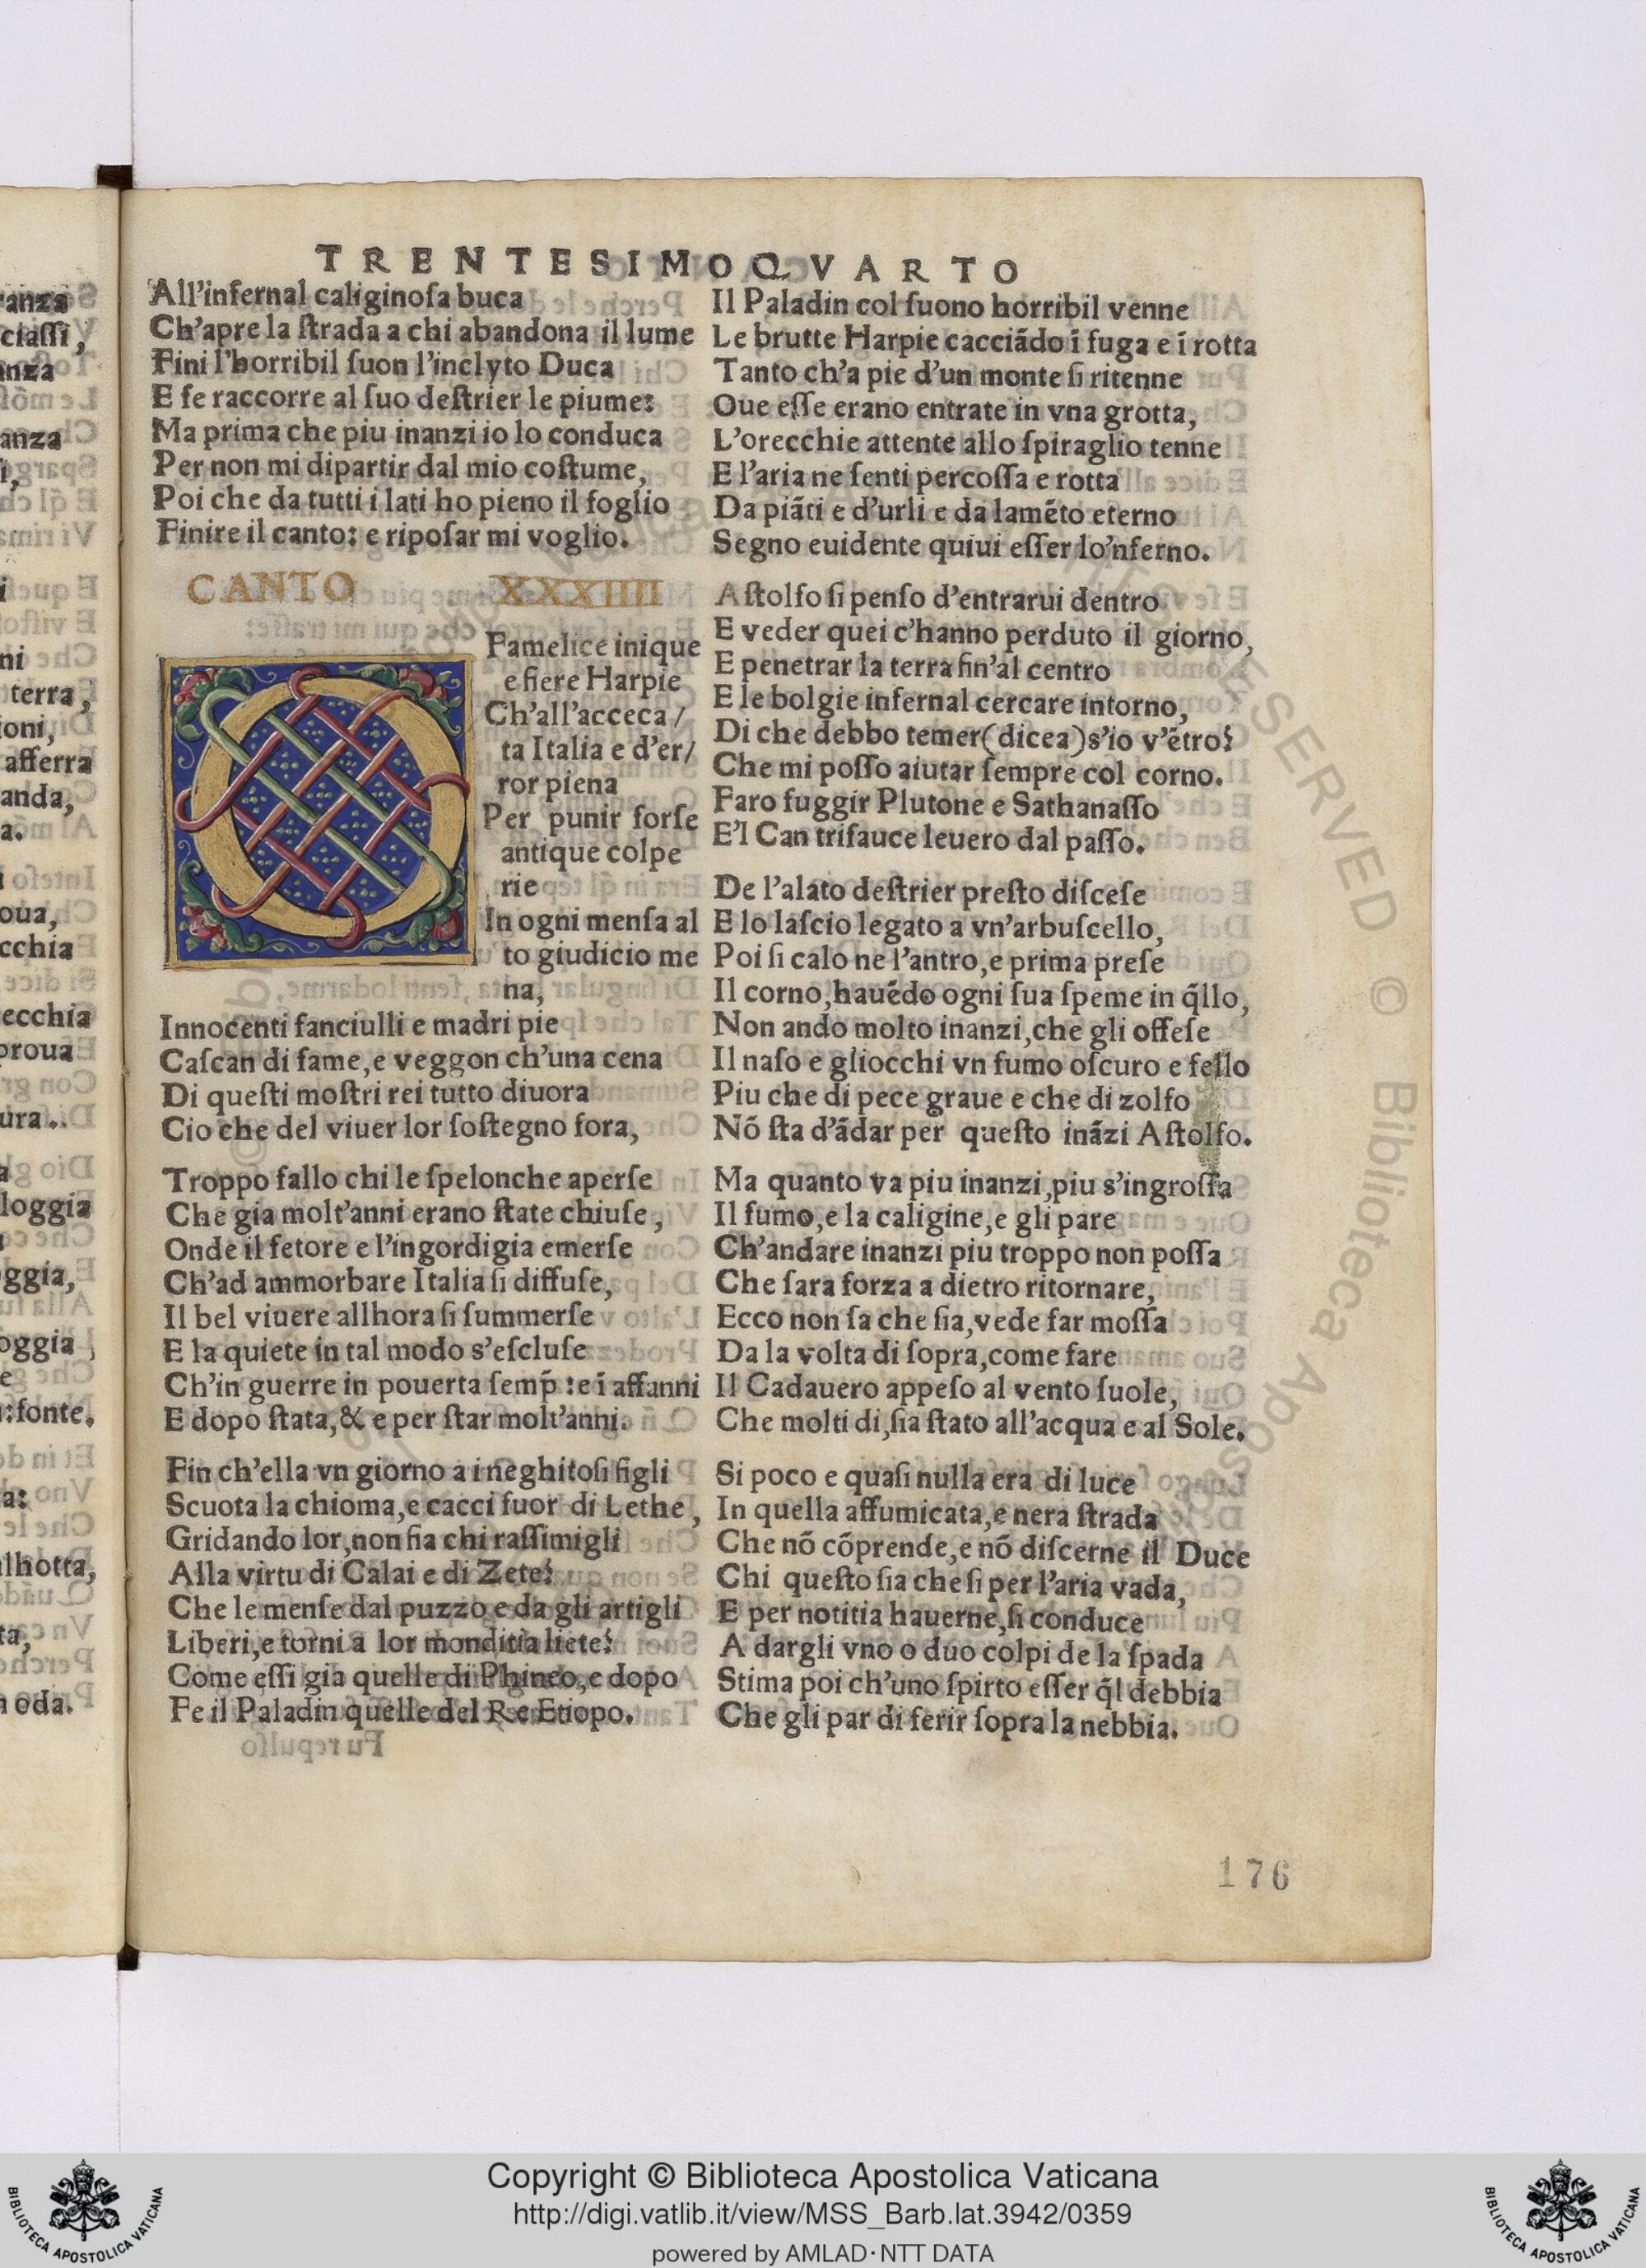 TRENTESIMOQVARTO
All'infernal caliginoſa buca
Ch'apre la ſtrada a chi abandona il lume
Fini l'horribil ſuon l'inclyto Duca
E fe raccorre al ſuo deſtrier le piume:
Ma prima che piu inanzi io lo conduca
Per non mi dipartir dal mio coſtume,
Poi che da tutti i lati ho pieno il foglio
Finire il canto: e ripoſar mi voglio.
CANTO XXXIIII
O
Famelice inique
e fiere Harpie
Ch'all'acceca/
ta Italia e d'er/
ror piena
Per punir forſe
antique colpe
rie
In ogni menſa al
to giudicio me
na,
Innocenti fanciulli e madri pie
Caſcan di fame, e veggon ch'una cena
Di queſti moſtri rei tutto diuora
Cio che del viuer lor ſoſtegno fora,
Troppo fallo chi le ſpelonche aperſe
Che gia molt'anni erano ſtate chiuſe,
Onde il fetore e l'ingordigia emerſe
Ch'ad ammorbare Italia ſi diffuſe,
Il bel viuere allhora ſi ſummerſe
E la quiete in tal modo s'eſcluſe
Ch'in guerre in pouerta ſemp̃: e ĩ affanni
E dopo ſtata, & e per ſtar molt'anni.
Fin ch'ella vn giorno a i neghitoſi figli
Scuota la chioma, e cacci fuor di Lethe,
Gridando lor, non fia chi raſſimigli
Alla virtu di Calai e di Zete?
Che le menſe dal puzzo e da gli artigli
Liberi, e torni a lor monditia liete?
Come eſſi gia quelle di Phineo, e dopo
Fe il Paladin quelle del Re Etiopo.
Il Paladin col ſuono horribil venne
Le brutte Harpie cacciãdo ĩ fuga e ĩ rotta
Tanto ch'a pie d'un monte ſi ritenne
Oue eſſe erano entrate in vna grotta,
L'orecchie attente allo ſpiraglio tenne
E l'aria ne ſenti percoſſa e rotta
Da piãti e d'urli e da lamẽto eterno
Segno euidente quiui eſſer lo'nferno.
Aſtolfo ſi penſo d'entrarui dentro
E veder quei c'hanno perduto il giorno,
E penetrar la terra fin'al centro
E le bolgie infernal cercare intorno,
Di che debbo temer (dicea) s'io v'ẽtro?
Che mi poſſo aiutar ſempre col corno.
Faro fuggir Plutone e Sathanaſſo
E'l Can trifauce leuero dal paſſo.
De l'alato deſtrier preſto diſceſe
E lo laſcio legato a vn'arbuſcello,
Poi ſi calo ne l'antro, e prima preſe
Il corno, hauẽdo ogni ſua ſpeme in q̃llo,
Non ando molto inanzi, che gli offeſe
Il naſo e gliocchi vn fumo oſcuro e fello
Piu che di pece graue e che di zolfo
Nõ ſta d'ãdar per queſto inãzi Aſtolfo.
Ma quanto va piu inanzi, piu s'ingroſſa
Il fumo, e la caligine, e gli pare
Ch'andare inanzi piu troppo non poſſa
Che ſara forza a dietro ritornare,
Ecco non ſa che ſia, vede far moſſa
Da la volta di ſopra, come fare
Il Cadauero appeſo al vento ſuole,
Che molti di, ſia ſtato all'acqua e al Sole.
Si poco e quaſi nulla era di luce
In quella affumicata, e nera ſtrada
Che nõ cõprende, e nõ diſcerne il Duce
Chi queſto ſia che ſi per l'aria vada,
E per notitia hauerne, ſi conduce
A dargli vno o duo colpi de la ſpada
Stima poi ch'uno ſpirto eſſer q̃l debbia
Che gli par di ferir ſopra la nebbia.
176
Copyright © Biblioteca Apostolica Vaticana
http://digi.vatlib.it/view/MSS_Barb.lat.3942/0359
powered by AMLAD·NTT DATA
BIBLIOTECA APOSTOLICA VATICANA
BIBLIOTECA APOSTOLICA VATICANA